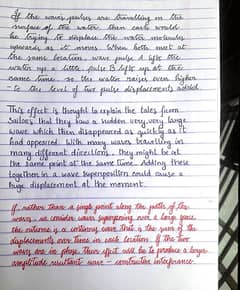 If the wave pulses are travelling on the
surface of the water then each would
be trying to displace the water molecules
upwards as it moves. When both meet at
the same location, wave pulse A lifts the
water up a little, pulse B lifts up at the
same time so the water raises even higher
- to the level of two pulse displacements added.
This effect is thought to explain the tales from
Sailors that they saw a sudden very, very large
wave which then disappeared as quickly as it
had appeared. With many waves travelling in
many different directions. They might be at
the same point at the same time. Adding these
together in a wave superposition could cause a
huge displacement at the moment.
If, rather than a single point along the paths of the
waves, we consider waves superposing over a large space
the outcome is a continuous wave that is the sum of the
displacements over time in each location. If the two
waves are in phase their effect will be to produce a larger
amplitude resultant wave - constructive interference.